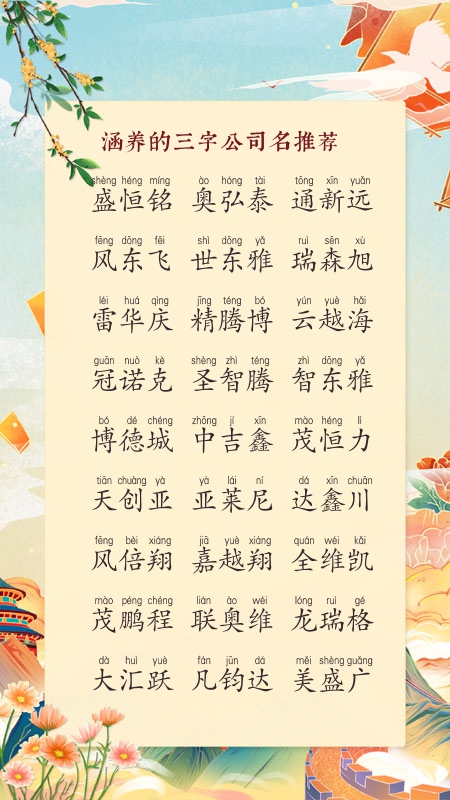 涵养的三字公司名推荐
shèng héng míng ào hóng tài tōng xīn yuǎn
盛恒铭 奥弘泰 通新远
fēng dōng fēi shì dōng yǎ ruì sēn xù
风东飞 世东雅 瑞森旭
léi huá qìng jīng téng bó yún yuè hǎi
雷华庆 精腾博 云越海
guān nuò kè shèng zhì téng zhì dōng yǎ
冠诺克 圣智腾 智东雅
bó dé chéng zhōng jí xīn mào héng lì
博德城 中吉鑫 茂恒力
tiān chuàng yà yà lái ní dá xīn chuān
天创亚 亚莱尼 达鑫川
fēng bèi xiáng jiā yuè xiáng quán wéi kǎi
风倍翔 嘉越翔 全维凯
mào péng chéng lián ào wéi lóng ruì gé
茂鹏程 联奥维 龙瑞格
dà huì yuè fán jūn dá měi shèng guǎng
大汇跃 凡钧达 美盛广